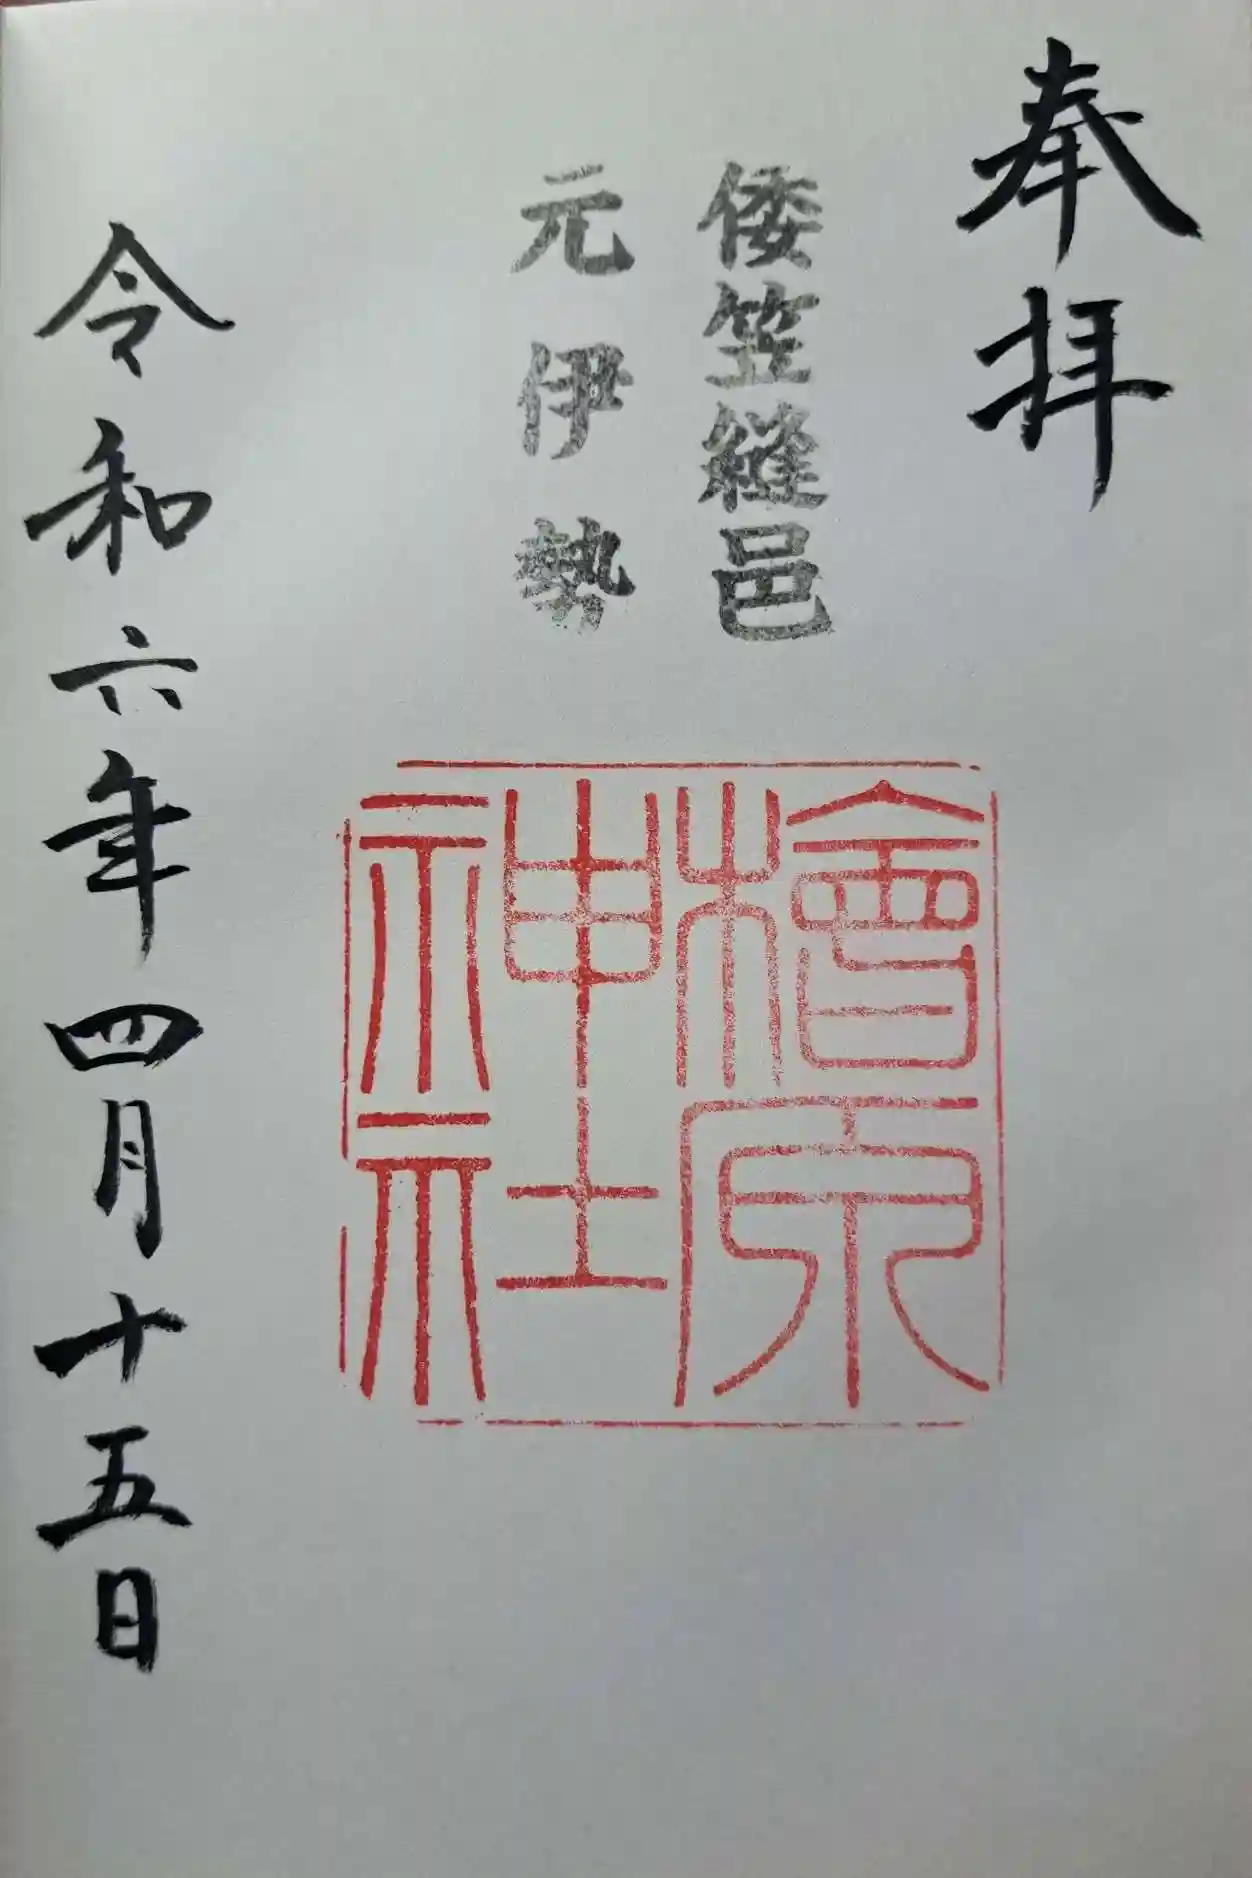 奉拝
倭笠縫邑
元伊勢
檜原
神社
令和六年四月十五日